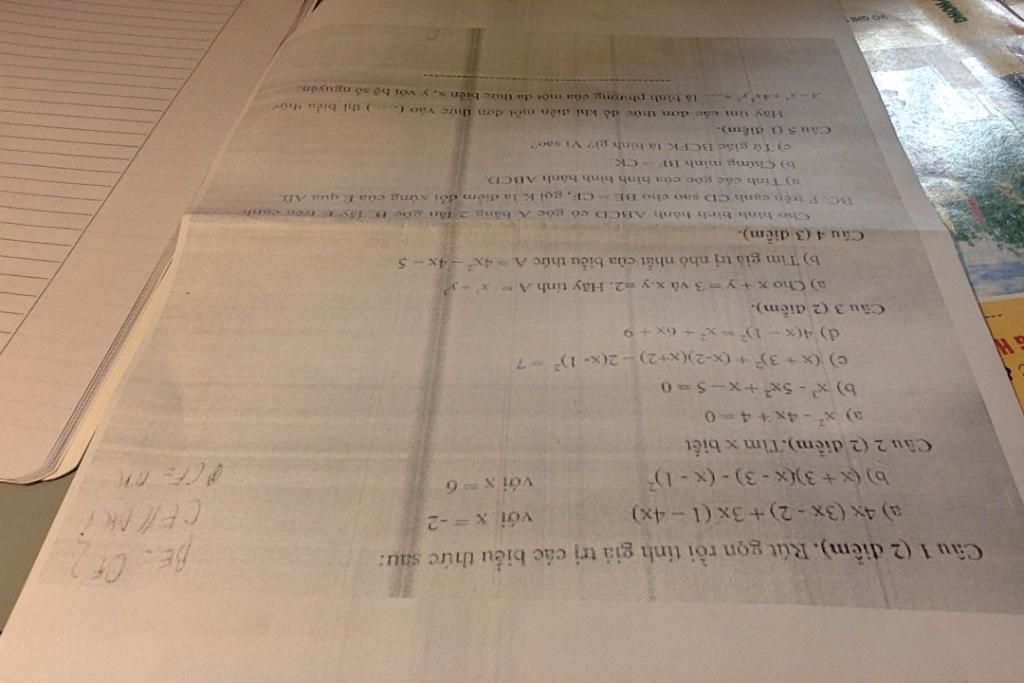 Câu 1 (2 điểm). Rút gọn rồi tính giá trị các biểu thức sau:
a) 4x (3x - 2) + 3x (1 – 4x) với x = -2
b) (x + 3)(x - 3) - (x - 1)² với x = 6
Câu 2 (2 điểm).Tìm x biết
a) x² - 4x + 4 = 0
b) x³ - 5x² + x – 5 = 0
c) (x + 3)² + (x-2)(x+2) – 2(x- 1)² = 7
d) 4(x – 1)² = x² + 6x + 9
Câu 3 (2 điểm).
a) Cho x + y = 3 và x.y =2. Hãy tính A =
b) Tìm giá trị nhỏ nhất của biểu thức A = 4x² – 4x – 5
Câu 4 (3 điểm).
Cho hình bình hành ABCD có góc A bằng 2 lần góc B, lấy E trên cạnh
BC, F trên cạnh CD sao cho BE = CF, gọi K là điểm đối xứng của E qua AB.
a) Tính các góc của hình bình hành ABCD.
b) Chứng minh BF = CK.
c) Tứ giác BCFK là hình gì? Vì sao?
Câu 5 (1 điểm).
Hãy tìm các đơn thức để khi điền mỗi đơn thức vào (.....) thì biểu thức
là bình phương của một đa thức biến x, y với hệ số nguyên.
BE = CF
CF // BK
CF = BK